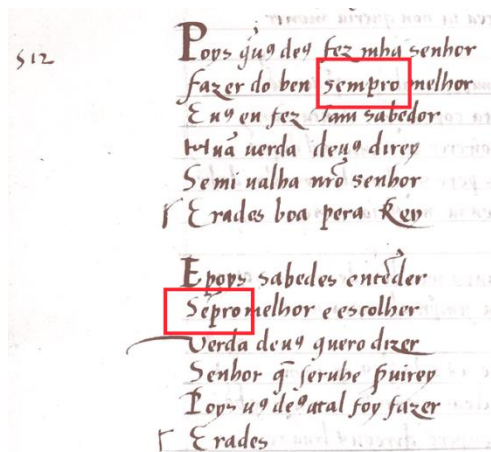 512
Poys q̄ uꝰ deꝰ fez mha senhor
fazer do ben sempro melhor
E uꝰ en fez tam sabedor
hũa uerda deuꝰ direy
Semi ualha nrõ senhor
Erades boa pera Rey
E poys sabedes entẽder
Sẽpro melhor e escolher
Verda deuꝰ quero dizer
Senhor q̄ seruhe ꝑuirey
Poys uꝰ deꝰ atal foy fazer
Erades